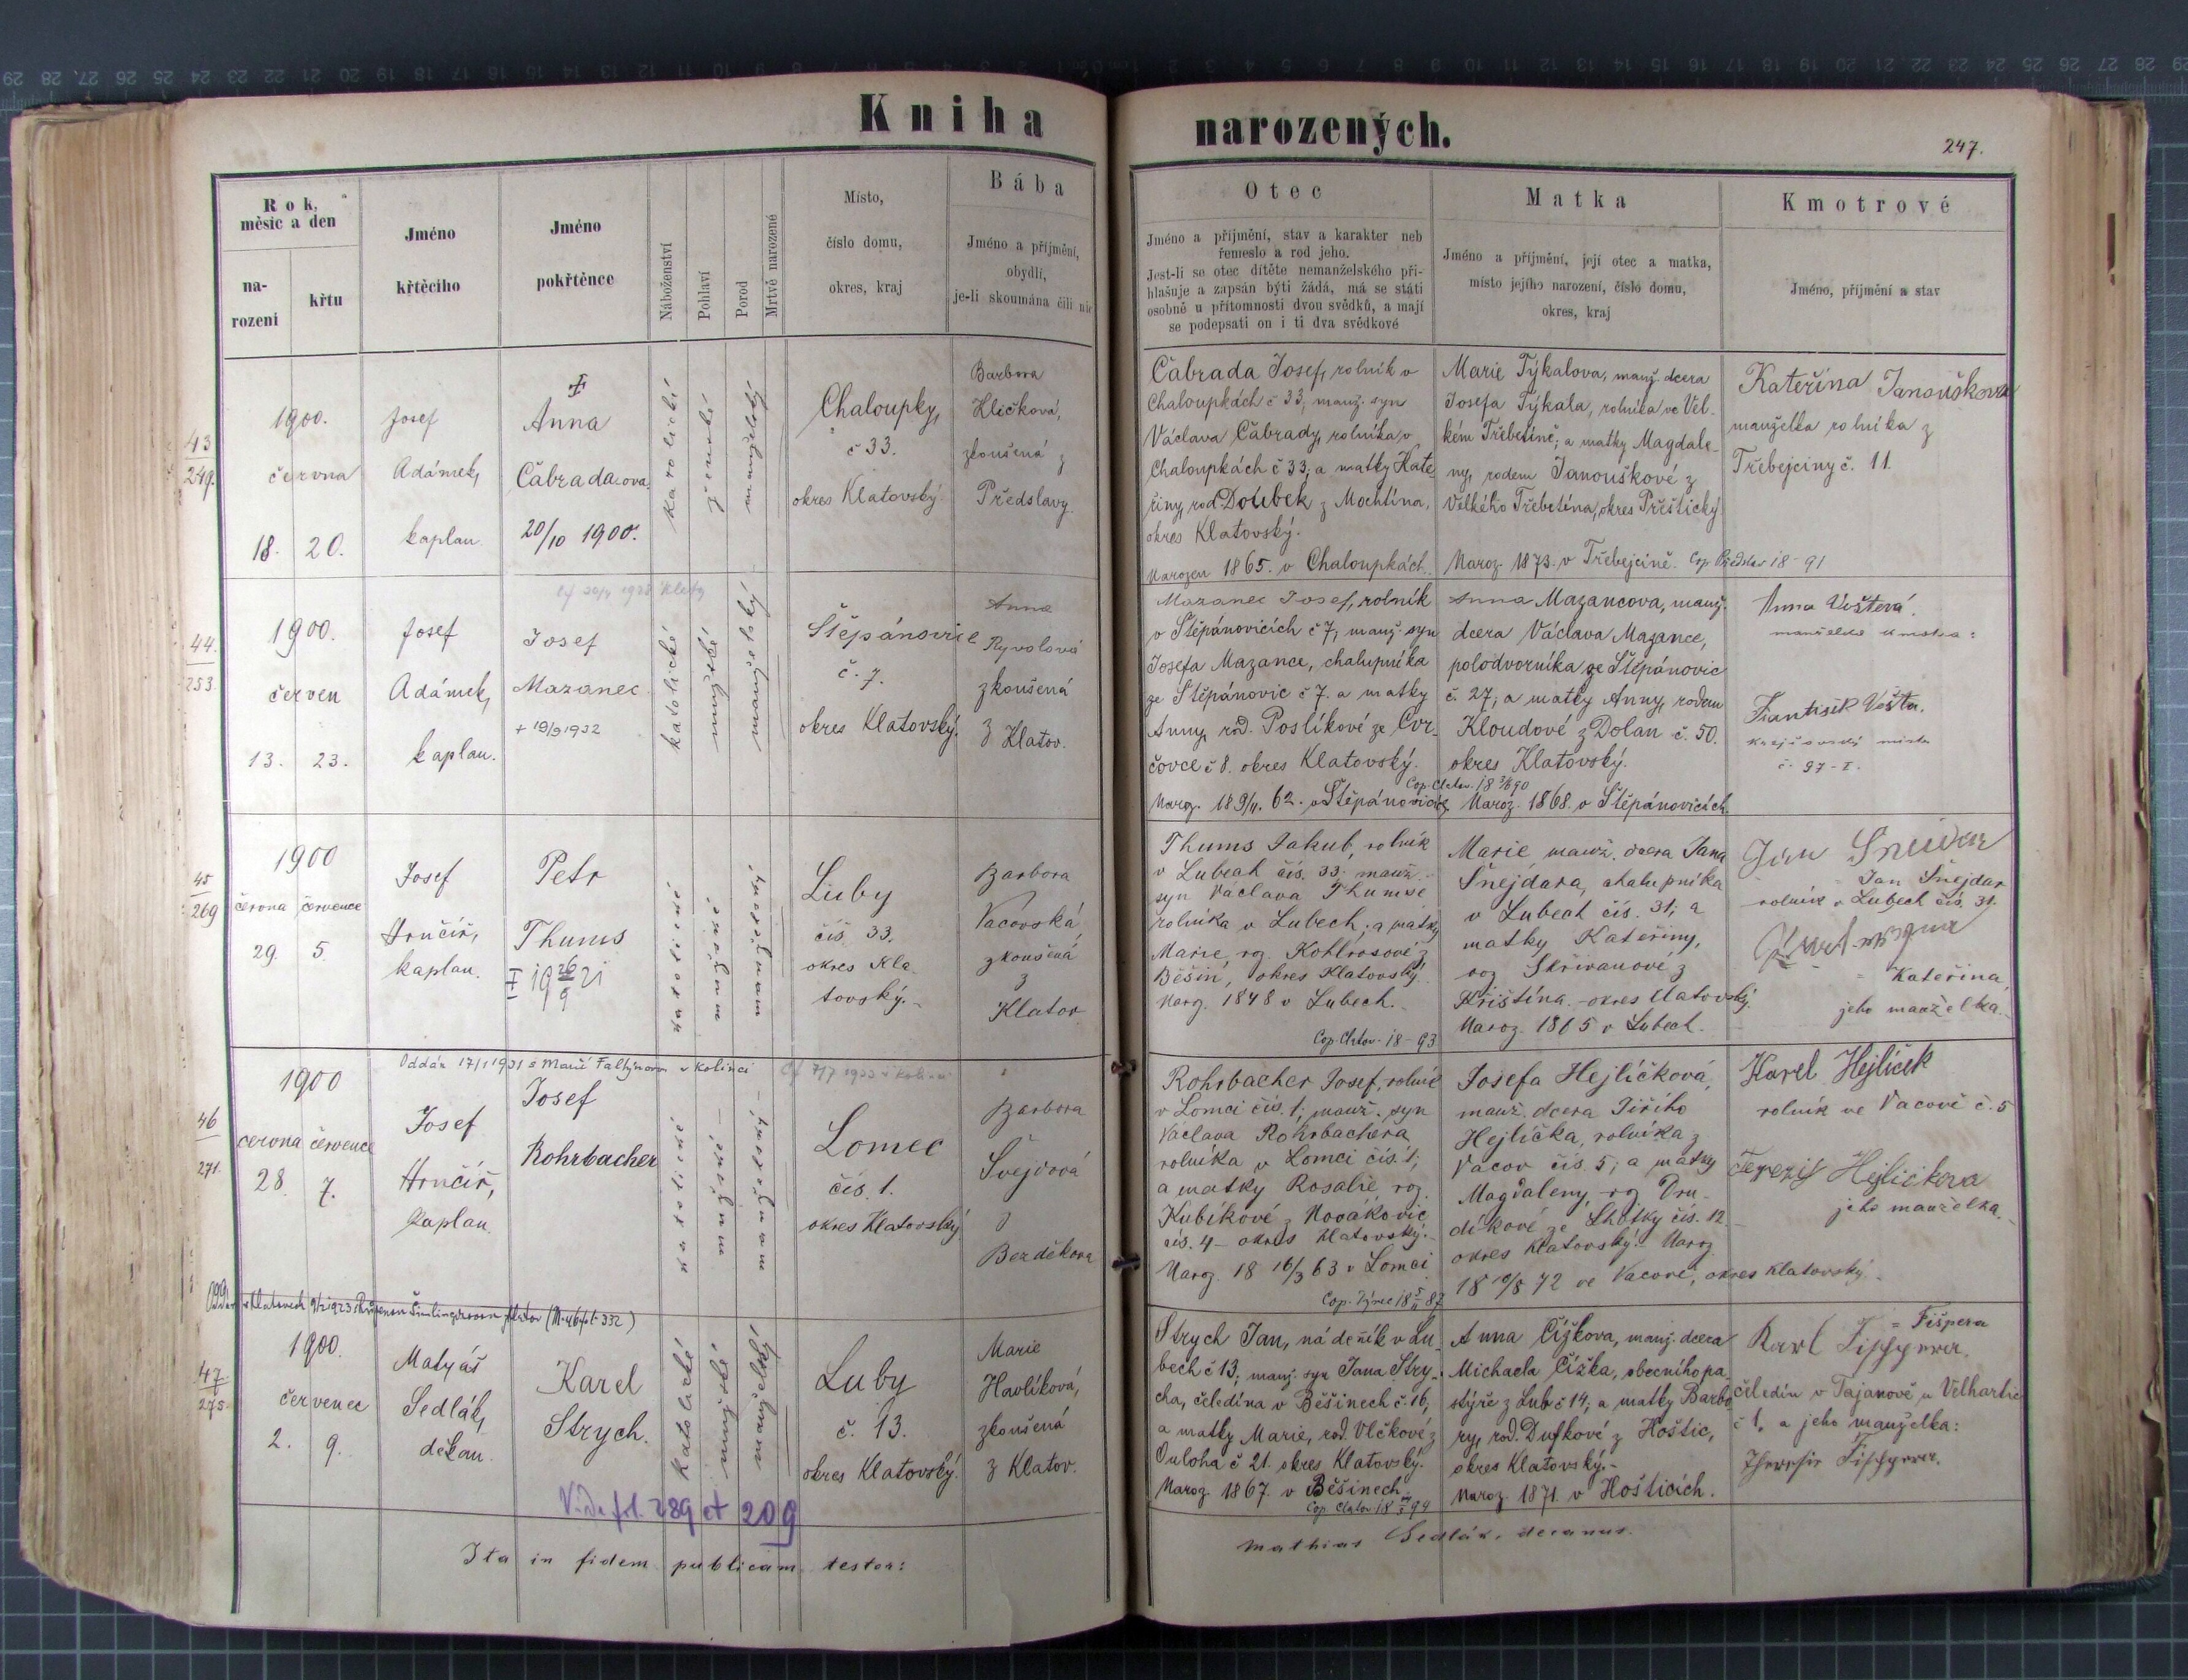 Kniha
narozených.
247.
Rok,
měsíc a den
na-
rozeni
křtu
Jméno
křtěcího
Jméno
pokřtěnce
Náboženství
Pohlaví
Porod
Mrtvě narozené
Místo,
číslo domu,
okres, kraj
Bába
Jméno a příjmění,
obydlí,
je-li skoumána čili nic
Otec
Jméno a příjmění, stav a karakter neb
řemeslo a rod jeho.
Jest-li se otec dítěte nemanželského při-
hlašuje a zapsán býti žádá, má se státi
osobně u přítomnosti dvou svědků, a mají
se podepsati on i ti dva svědkové
Matka
Jméno a příjmění, její otec a matka,
místo jejího narození, číslo domu,
okres, kraj
Kmotrové
Jméno, příjmění a stav
43
249.
1900.
června
18. 20.
Josef
Adámek,
kaplan.
Anna
Čabradaova.
20/10 1900.
katolické
ženské
manželský
Chaloupky,
č 33.
okres Klatovský.
Barbora
Hličková,
zkoušená z
Předslavy.
Čabrada Josef, rolník v
Chaloupkách č 33, manž. syn
Václava Čabrady, rolníka v
Chaloupkách č 33; a matky Kate-
řiny, rod. Doubek z Mochtína,
okres Klatovský.
Narozen 1865. v Chaloupkách.
Marie Týkalova, manž. dcera
Josefa Týkala, rolníka ve Vel-
kém Třebetíně; a matky Magdale-
ny, rodem Janouškové z
Velkého Třebetína, okres Přeštický.
Naroz. 1873. v Třebejcině. Cop. Předslav 18-91
Kateřina Janoušková
manželka rolníka z
Třebejciny č. 11.
44.
253.
1900.
červen
13. 23.
Josef
Adámek,
kaplan.
Josef
Mazanec.
+ 19/9 1932
katolické
mužské
manželský
Štěpánovice
č. 7.
okres Klatovský.
Anna
Ryvolová
zkoušená
z Klatov.
Mazanec Josef, rolník
v Štěpánovicích č 7, manž. syn
Josefa Mazance, chalupníka
ze Štěpánovic č 7. a matky
Anny, rod. Poslíkové ze Cvr-
čovce č 8. okres Klatovský.
Naroz. 18 9/4. 62. v Štěpánovicích
Anna Mazancova, manž.
dcera Václava Mazance,
polodvorníka ze Štěpánovic
č. 27; a matky Anny, rodem
Kloudové z Dolan č. 50.
okres Klatovský.
Naroz. 1868. v Štěpánovicích.
Anna Voštová.
František Vošta.
č. 97-I.
45
269
1900
června července
29. 5.
Josef
Hrnčíř,
kaplan.
Petr
Thums
katolické
mužské
manželský
Luby
čís. 33.
okres Kla-
tovský.
Barbora
Vacovská,
zkoušená
z
Klatov
Thums Jakub, rolník
v Lubech čís. 33. manž.
syn Václava Thumse
rolníka v Lubech; a matky
Marie, roz. Kohlrosové z
Běšin, okres Klatovský.
Naroz. 1848 v Lubech.
Cop. Clatov. 18-93
Marie manž. dcera Jana
Šnejdara, chalupníka
v Lubech čís. 31; a
matky Kateřiny,
roz. Skřivanové z
Křištína. okres Klatovský.
Naroz. 1865 v Lubech.
Jan Šnejdar
rolník v Lubech čís. 31.
Kateřina,
jeho manželka.
46
271.
Oddán 17/1 1931 s Marií Faltýnovou v Kolinci
1900
června července
28. 7.
Josef
Hrnčíř,
kaplan
Josef
Rohrbacher
katolické
mužské
manželský
Lomec
čís. 1.
okres Klatovský
Barbora
Švejdová
z
Bezděkova
Rohrbacher Josef, rolník
v Lomci čís. 1; manž. syn
Václava Rohrbachera
rolníka v Lomci čís. 1;
a matky Rosalie, roz.
Kubíkové z Novákovic
čís. 4 okres Klatovský.
Naroz. 18 16/3 63 v Lomci
Josefa Hejlíčková,
manž. dcera Jiřího
Hejlíčka, rolníka z
Vacov čís. 5; a matky
Magdaleny, roz Dru-
díkové ze Lhotky čís. 12
okres Klatovský. Naroz.
18 10/5 72 ve Vacově, okres Klatovský.
Karel Hejlíček
rolník ve Vacově č. 5
Terezie Hejličkova
jeho manželka.
47
275
1900.
červenec
2. 9.
Matyáš
Sedlák,
děkan.
Karel
Strych.
katolické
mužské
manželský
Luby
č. 13.
okres Klatovský.
Marie
Havlíková,
zkoušená
z Klatov.
Strych Jan, nádeník v Lu-
bech č 13; manž. syn Jana Stry-
cha, čeledína v Běšinech č. 16,
a matky Marie, rod. Vlčkové z
Ouloha č 21. okres Klatovský.
Naroz. 1867. v Běšinech.
Anna Čížkova, manž. dcera
Michaela Čížka, obecního pa-
stýře z Lub č 14; a matky Barbo-
ry, rod. Dufkové z Hoštic,
okres Klatovský.
Naroz. 1871. v Hošticích.
= Fišpera
Karl Fischpera.
čeledín v Tajanově u Velhartic
č 1, a jeho manželka:
Theresie Fischpera.
Vide fol. 289 et 209
Ita in fidem publicam testor:
Mathias Sedlák, decanus.